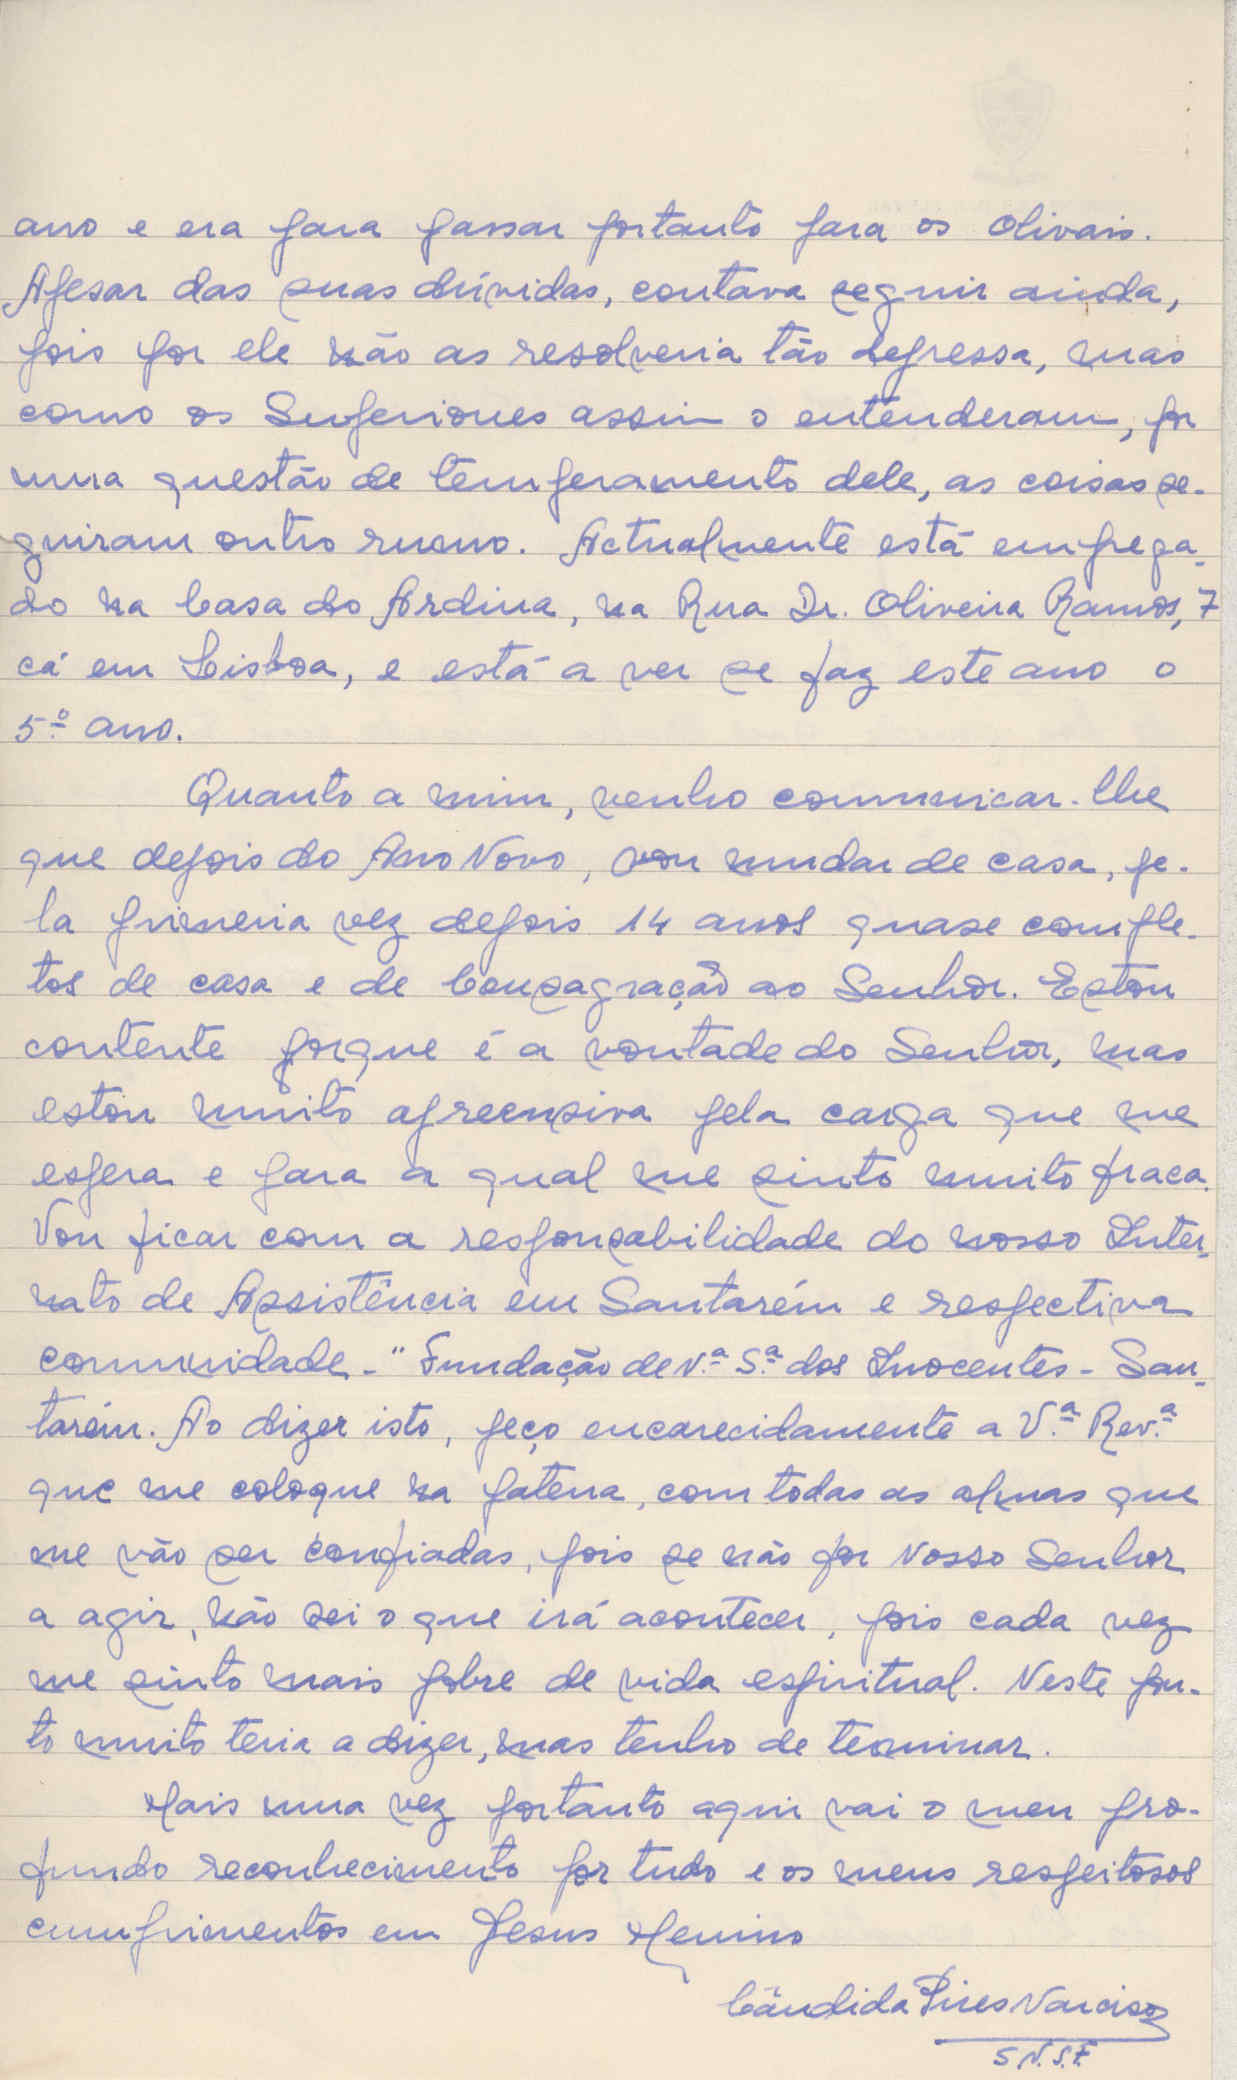 ano e era para passar portanto para os Olivais.
Apesar das suas dúvidas, contava seguir ainda,
pois por ele não as resolveria tão depressa, mas
como os Superiores assim o entenderam, por
uma questão de temperamento dele, as coisas se-
guiram outro rumo. Actualmente está emprega-
do na Casa do Ardina, na Rua Dr. Oliveira Ramos, 7
cá em Lisboa, e está a ver se faz este ano o
5º ano.
Quanto a mim, venho comunicar-lhe
que depois do Ano Novo, vou mudar de casa, pe-
la primeira vez depois 14 anos quase comple-
tos de casa e de Consagração ao Senhor. Estou
contente porque é a vontade do Senhor, mas
estou muito apreensiva pela carga que me
espera e para a qual me sinto muito fraca.
Vou ficar com a responsabilidade do nosso Inter-
nato de Assistência em Santarém e respectiva
comunidade - "Fundação de N.ª S.ª dos Inocentes - San-
tarém. Ao dizer isto, peço encarecidamente a V.ª Rev.ª
que me coloque na patena, com todas as almas que
me vão ser confiadas, pois se não for Nosso Senhor
a agir, não sei o que irá acontecer, pois cada vez
me sinto mais pobre de vida espiritual. Neste pon-
to muito teria a dizer, mas tenho de terminar.
Mais uma vez portanto aqui vai o meu pro-
fundo reconhecimento por tudo e os meus respeitosos
cumprimentos em Jesus Menino
Cândida Pires Narciso
S.N.S.F.